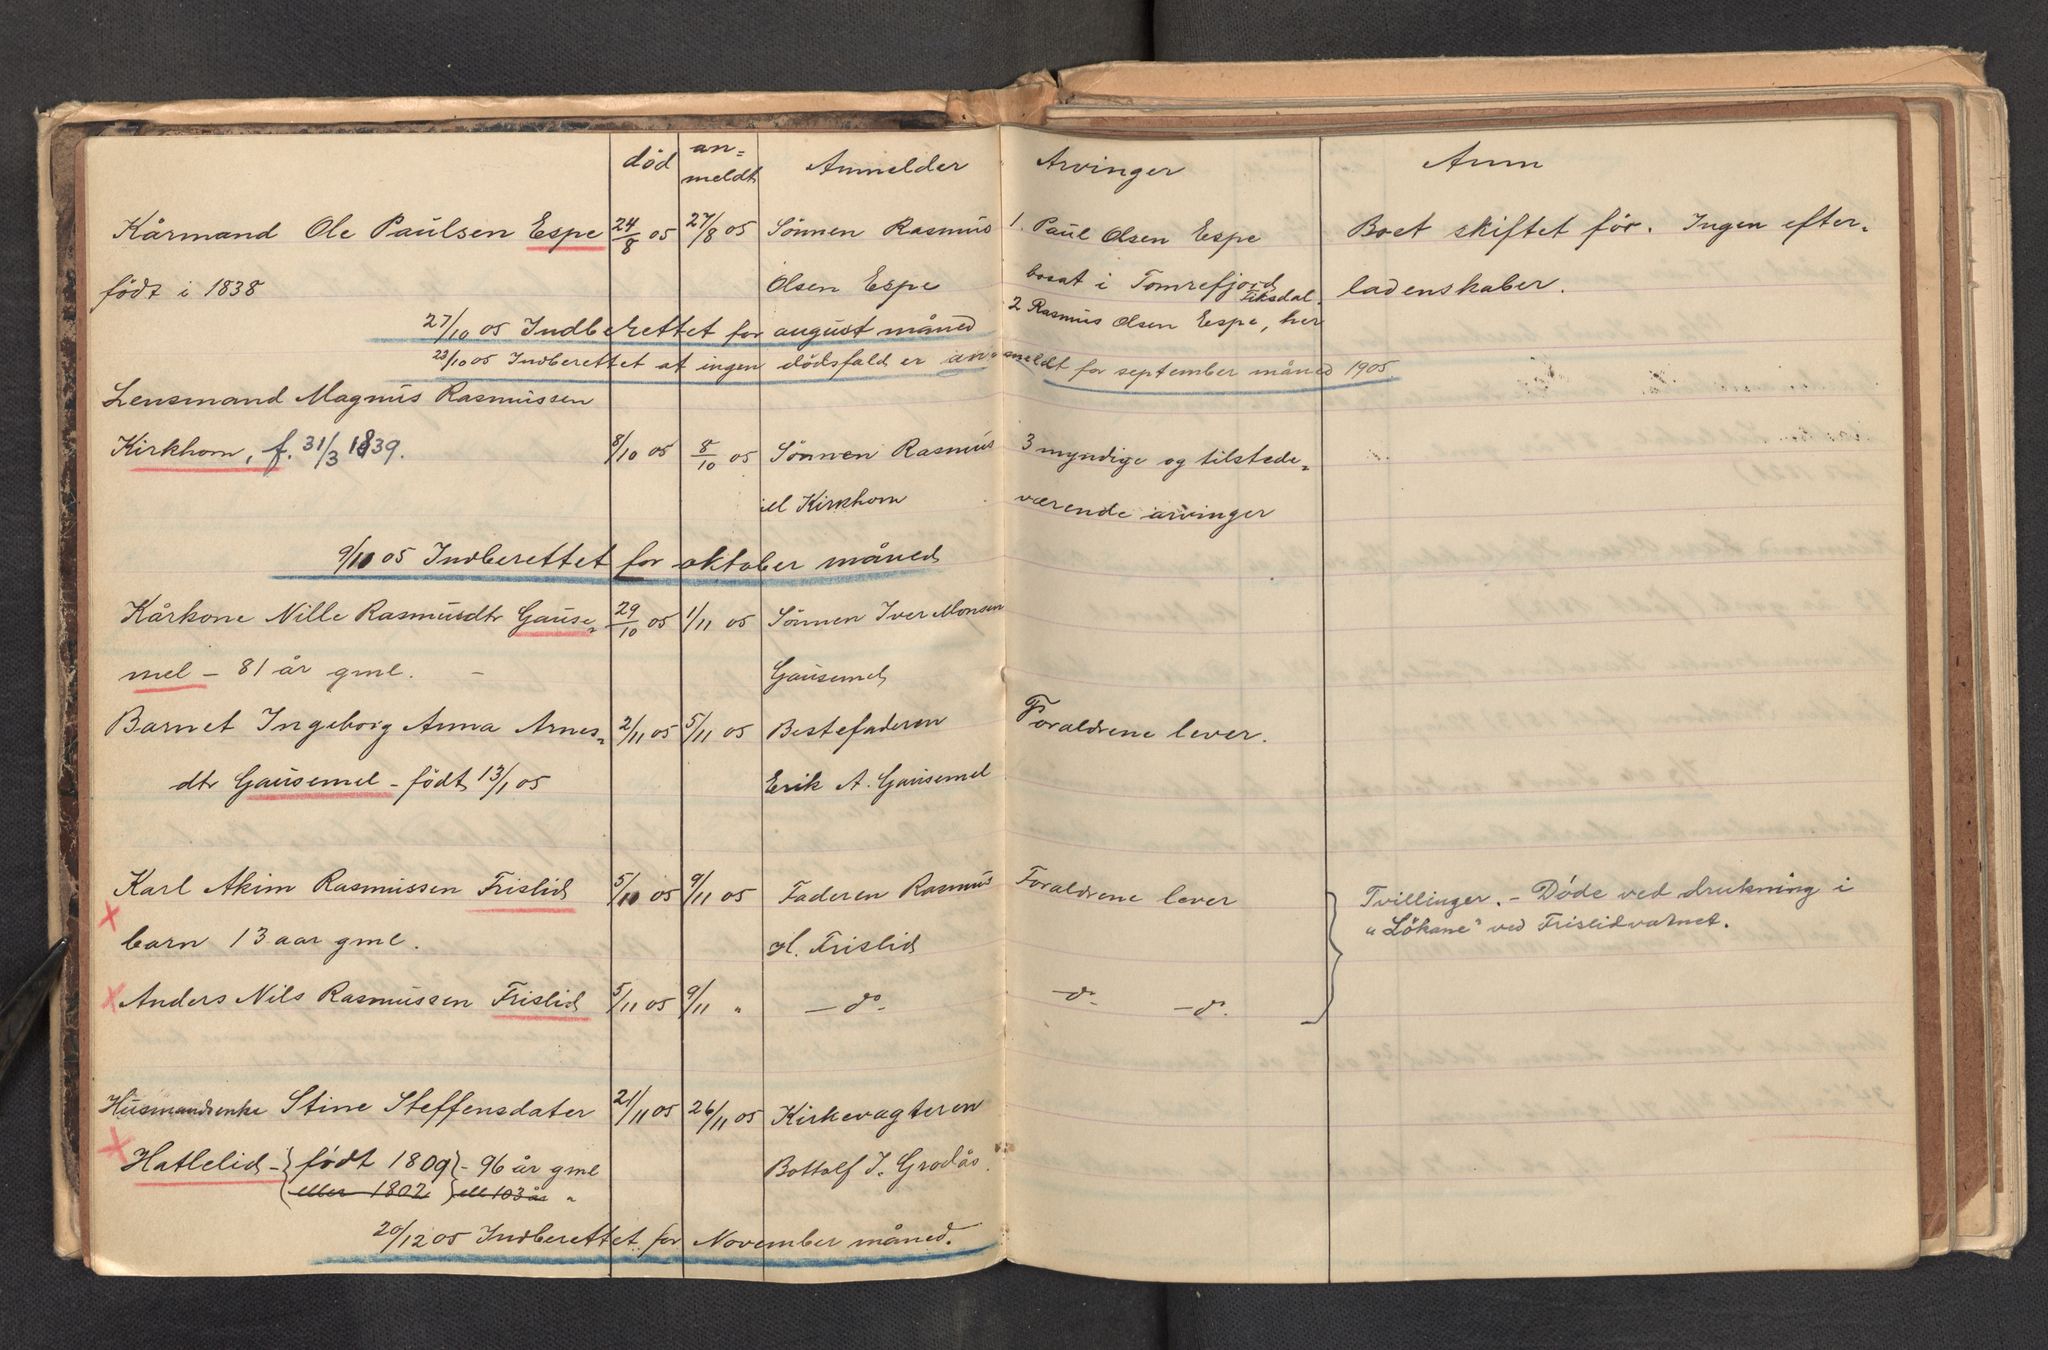 død an= meldt Anmelder Arvinger Anm
Kårmand Ole Paulsen Espe 24/8 05 27/8 05 Sönnen Rasmus 1. Paul Olsen Espe Boet skiftet för. Ingen efter-
födt i 1838 Olsen Espe bosat i Tomrefjord ladenskaber.
Fiksdal.
27/10 05 Indberettet for august måned 2 Rasmus Olsen Espe, her
23/10 05 Indberettet at ingen dödsfald er anmeldt for september måned 1905
Lensmand Magnus Rasmussen
Kirkhorn, f. 31/3 1839. 8/10 05 8/10 05 Sönnen Rasmus 3 myndige og tilstede-
M Kirkhorn værende arvinger
9/11 05 Indberettet for oktober måned
Kårkone Nille Rasmusdtr Gause- 29/10 05 1/11 05 Sönnen Iver Monsen
mel – 81 år gml. – Gausemel
Barnet Ingeborg Anna Arnes- 2/11 05 5/11 05 Bestefaderen Foraldrene lever.
dtr Gausemel – födt 13/1 05 Erik A. Gausemel
Karl Akim Rasmussen Frislid 5/11 05 9/11 05 Faderen Rasmus Foraldrene lever Tvillinger. – Døde ved drukning i
barn 13 aar gml. H. Frislid "Lökane" ved Frislidvatnet.
Anders Nils Rasmussen Frislid 5/11 05 9/11 " – do – – do – – do.
Husmandsenke Stine Steffensdater 21/11 05 26/11 05 Kirkevagteren
Hatlelid – { födt 1809 } – 96 år gml Bottolf J. Grodås.
eller 1802 ell 103 år "
20/12 05 Indberettet for November måned.